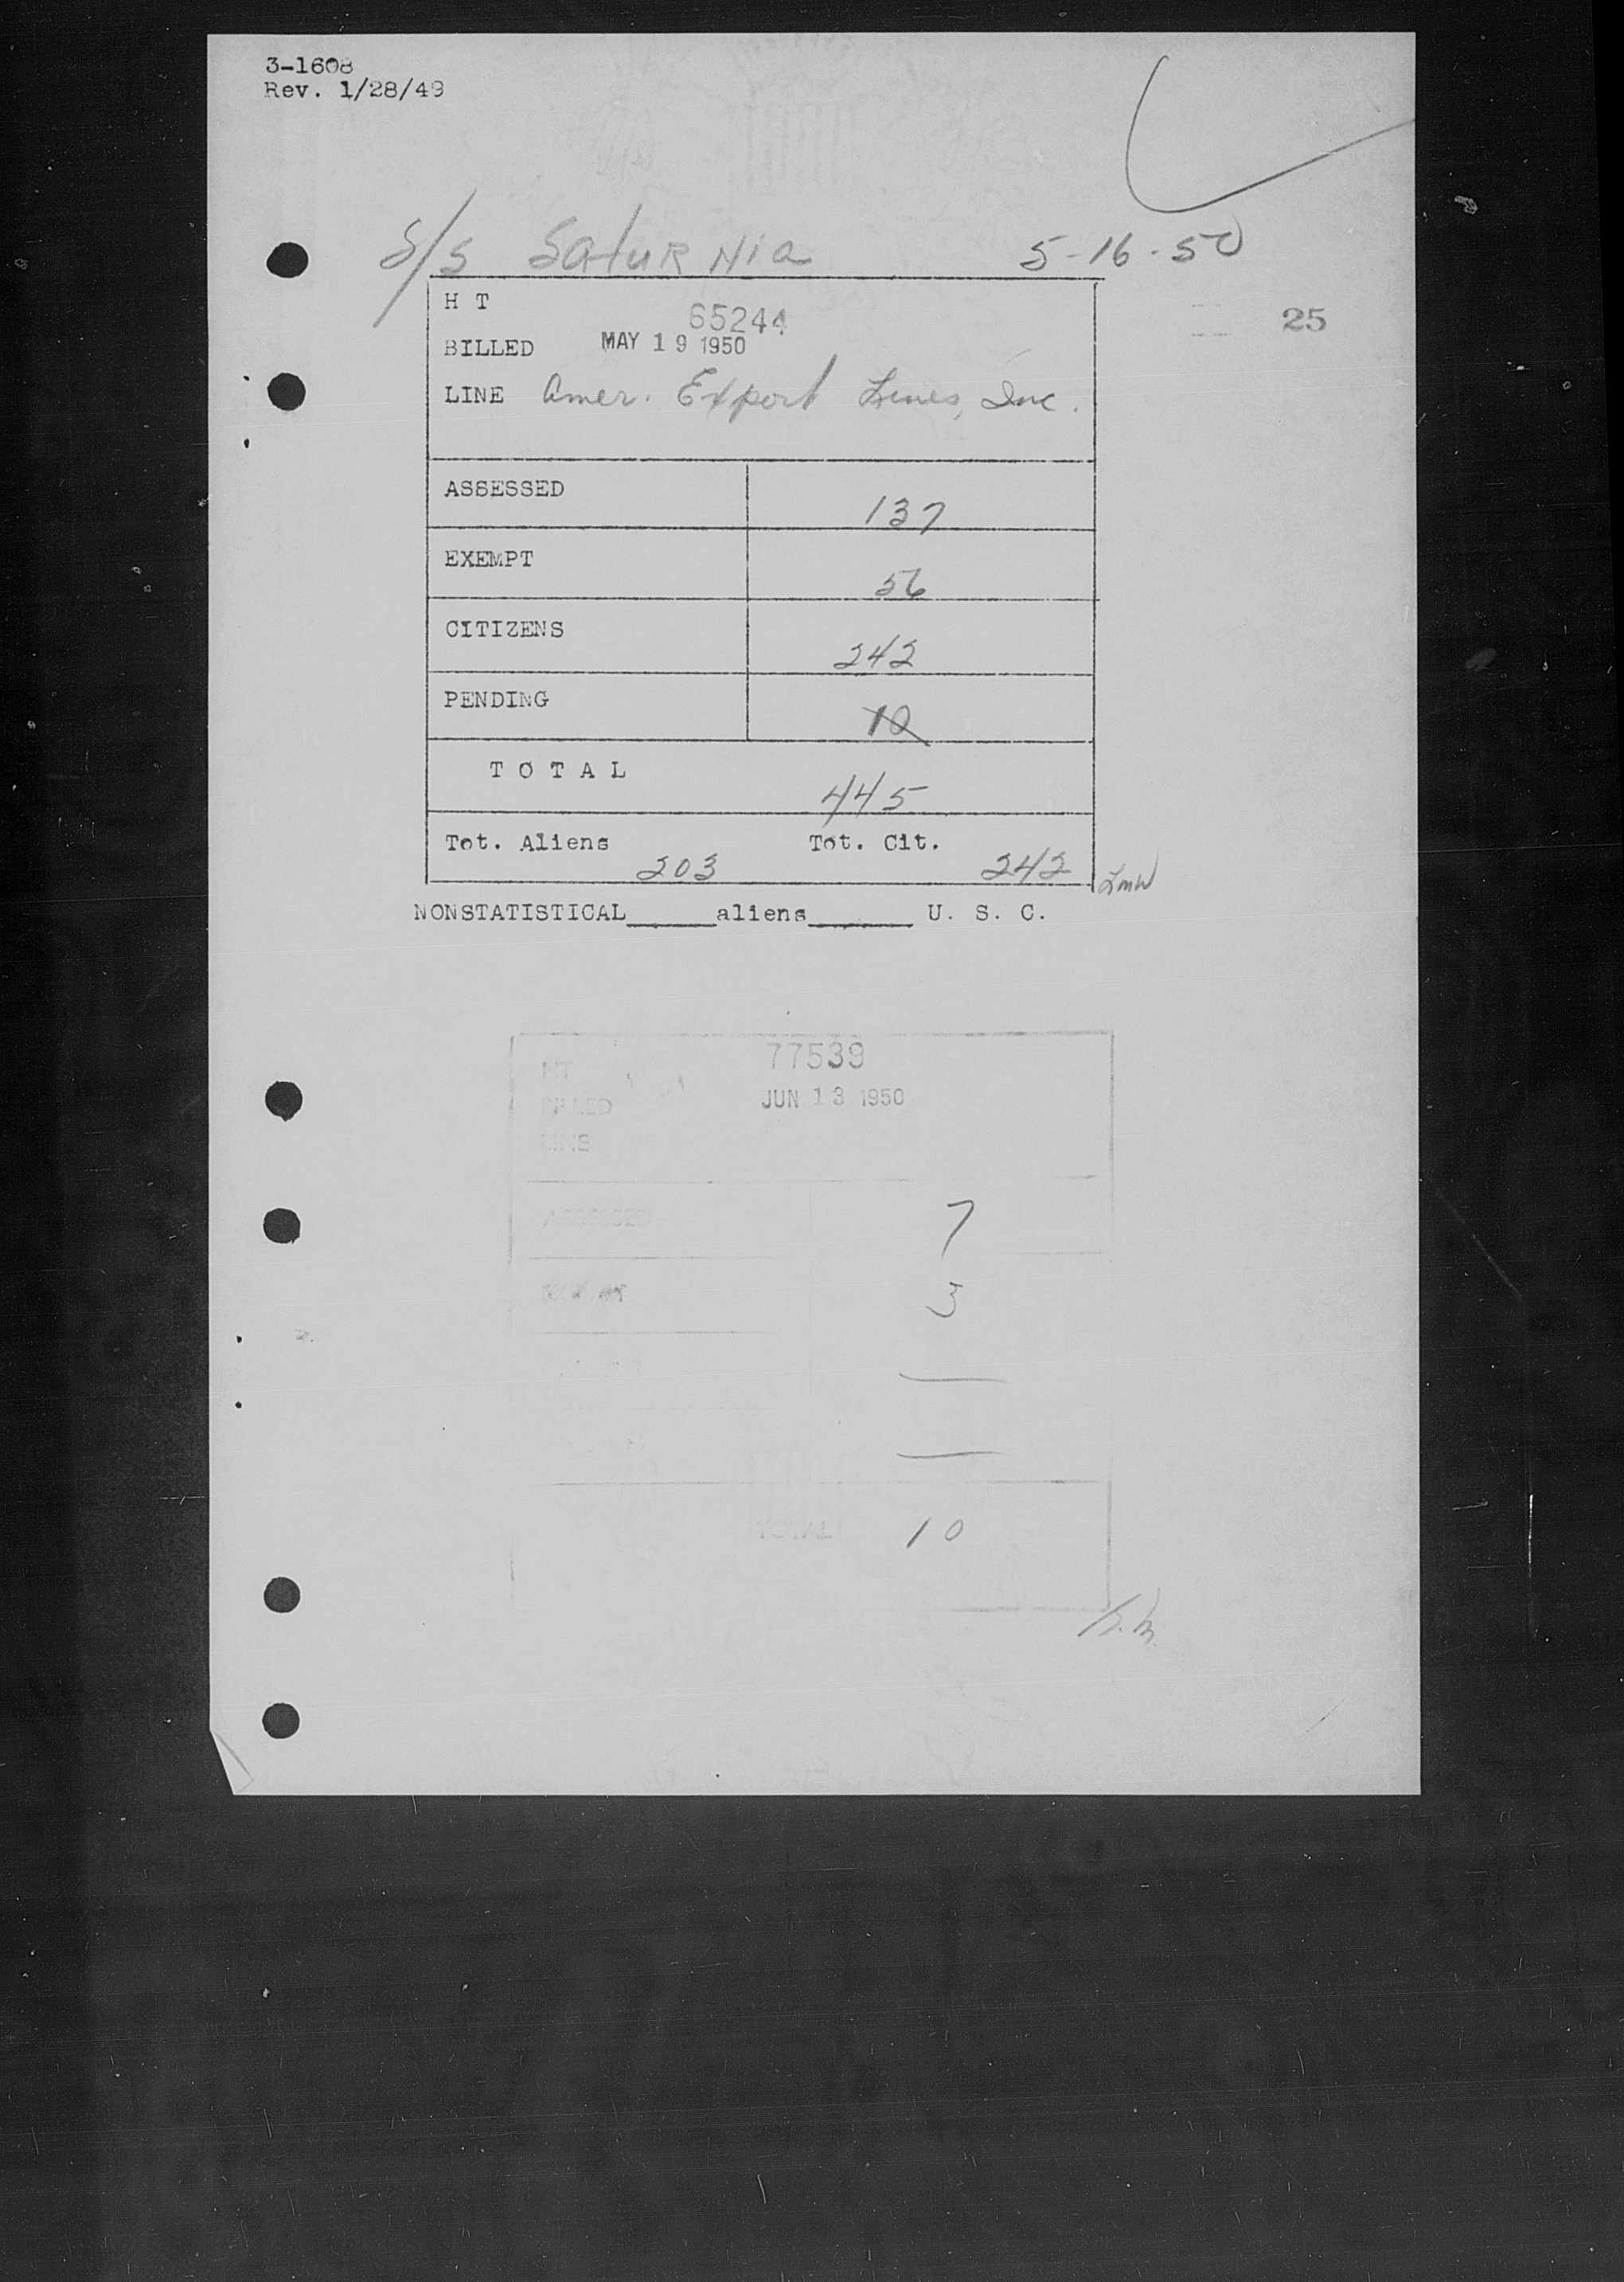 3-1608
Rev. 1/28/49
S/S Saturnia 5-16-50
H T 65244
BILLED MAY 19 1950
25
LINE Amer. Export Lines, Inc.
ASSESSED 137
EXEMPT 56
CITIZENS 242
PENDING 10
T O T A L 445
Tot. Aliens 203 Tot. Cit. 242
NONSTATISTICAL______aliens_______ U. S. C.
HT 77539
BILLED JUN 13 1950
LINE
ASSESSED 7
EXEMPT 3
TOTAL 10